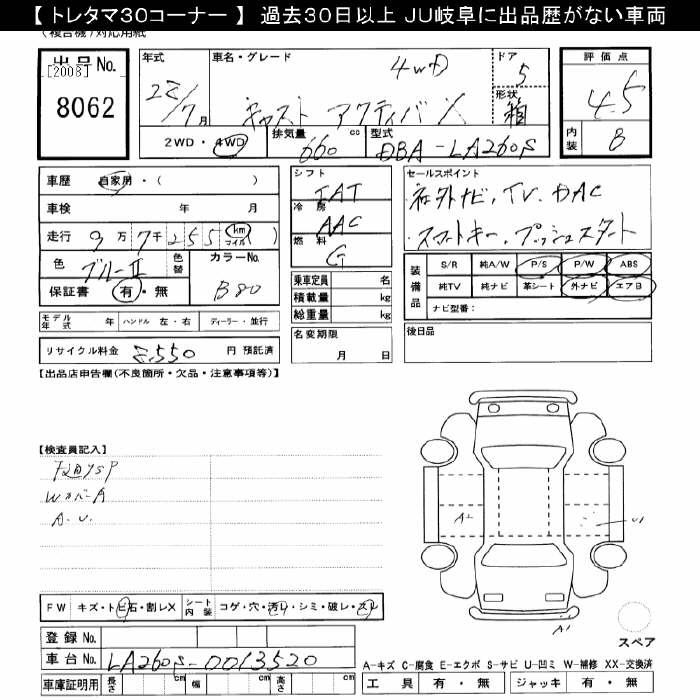 【 トレタマ30コーナー 】 過去30日以上 JU岐阜に出品歴がない車両
(複合機)対応用紙
出品 No.
[2008]
8062
年式 車名・グレード ドア 評価点
4WD 5
7月 キャスト アクティバX 形状 箱 4.5
2WD・4WD 排気量 660 cc 型式 DBA-LA260S 内装 B
車歴 自家用・( )
車検 年 月
走行 9万7千255 km マイル )
色 ブルーII 色替 カラーNo. B80
保証書 有・無
シフト IAT
冷房 AAC
燃料 G
乗車定員 名
積載量 kg
総重量 kg
名変期限
月 日
セールスポイント
社外ナビ、TV、DAC
スマートキー、プッシュスタート
装備品 S/R 純A/W P/S P/W ABS
純TV 純ナビ 革シート 外ナビ エアB
ナビ型番:
後日品
モデル年式 年 ハンドル 左・右 ディーラー・並行
リサイクル料金 円 預託済
【出品店申告欄(不良箇所・欠品・注意事項等)】
【検査員記入】
WカバーA
A.U.
A2 U1
A1
FW キズ・トビ石・割レX シート内装 コゲ・穴・汚レ・シミ・破レ・スレ
スペア
登録 No.
車台 No. LA260S-0013520
車庫証明用 長さ cm 幅 cm 高さ cm
A-キズ C-腐食 E-エクボ S-サビ U-凹ミ W-補修 XX-交換済
工具 有・無 ジャッキ 有・無